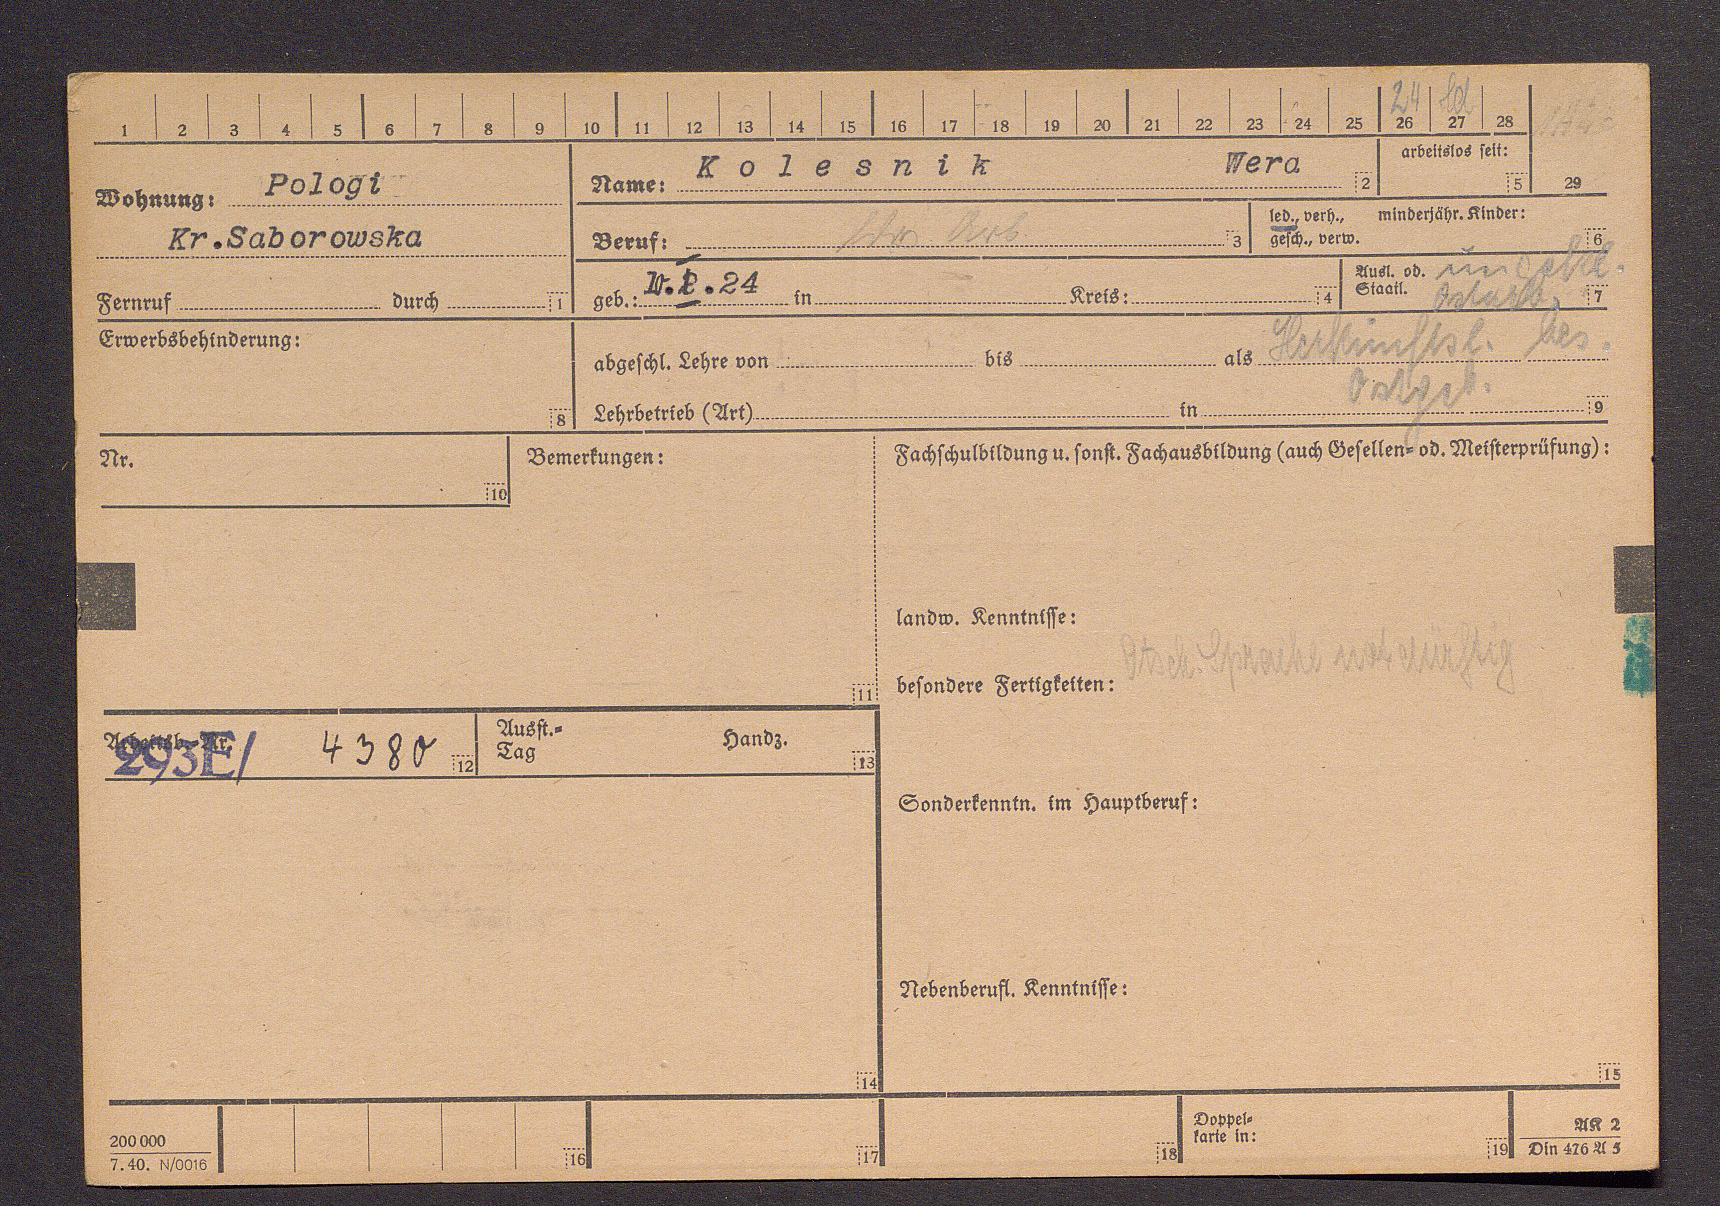 24 Ld
1 2 3 4 5 6 7 8 9 10 11 12 13 14 15 16 17 18 19 20 21 22 23 24 25 26 27 28
Wohnung: Pologi
Kr.Saborowska
Fernruf durch 1
Name: Kolesnik Wera 2
arbeitslos seit: 5
29
Beruf: Arb 3
led., verh., gesch., verw.
minderjähr. Kinder: 6
geb.: .24 in Kreis: 4
Ausl. od. Staatl. ungekl.
Ostarb. 7
Erwerbsbehinderung: 8
abgeschl. Lehre von bis als Herkunftsl. bes.
Ostgeb.
Lehrbetrieb (Art) in 9
Nr. 10
Bemerkungen: 11
Fachschulbildung u. sonst. Fachausbildung (auch Gesellen- od. Meisterprüfung):
landw. Kenntnisse:
Dtsch. Sprache notdürftig
besondere Fertigkeiten:
Arbeitsb.-Nr. 293E/ 4380 12
Ausst.-
Tag Handz. 13
Sonderkenntn. im Hauptberuf:
Nebenberufl. Kenntnisse:
14 15
200 000
7.40. N/0016
16 17 18
Doppel-
karte in: 19
AK 2
Din 476 A 5